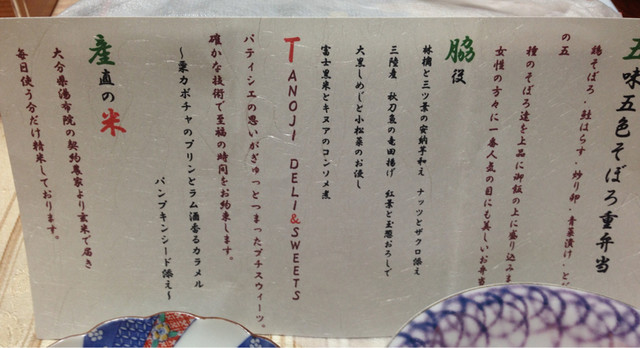 五味五色そぼろ重弁当
鶏そぼろ・鮭はらす・炒り卵・青菜漬け・とび
の五
種のそぼろ達を上品に御飯の上に盛り込みま
女性の方々に一番人気の目にも美しいお弁当
脇役
林檎と三ツ葉の安納芋和え ナッツとザクロ添え
三陸産 秋刀魚の竜田揚げ 紅葉と玉葱おろしで
大黒しめじと小松菜のお浸し
富士黒米とキヌアのコンソメ煮
TANOJI DELI&SWEETS
パティシエの思いがぎゅっとつまったプチスウィーツ。
確かな技術で至福の時間をお約束します。
～栗カボチャのプリンとラム酒香るカラメル
パンプキンシード添え～
産直の米
大分県湯布院の契約農家より玄米で届き
毎日使う分だけ精米しております。